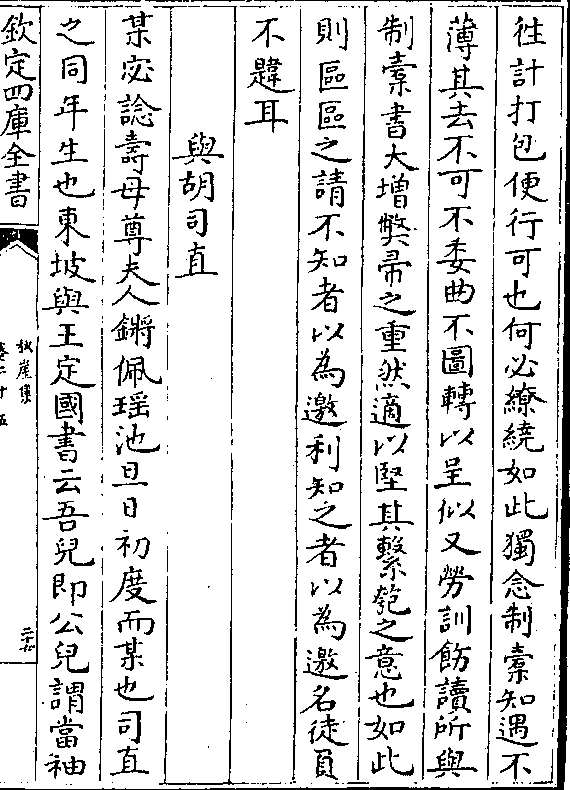 徃計打包便行可也何必繚繞如此獨念制㯱知遇不
薄其去不可不委曲不圖轉以呈似又勞訓飭讀所與
制㯱書大增弊帚之重然適以堅其繫匏之意也如此
則區區之請不知者以為邀利知之者以為邀名徒員
不韙耳
與胡司直
某宓諗壽母尊夫人鏘佩瑶池旦日初度而某也司直
之同年生也東坡與王定國書云吾兒即公兒謂當袖
欽定四庫全書
秋崖集
卷二十五
二十六